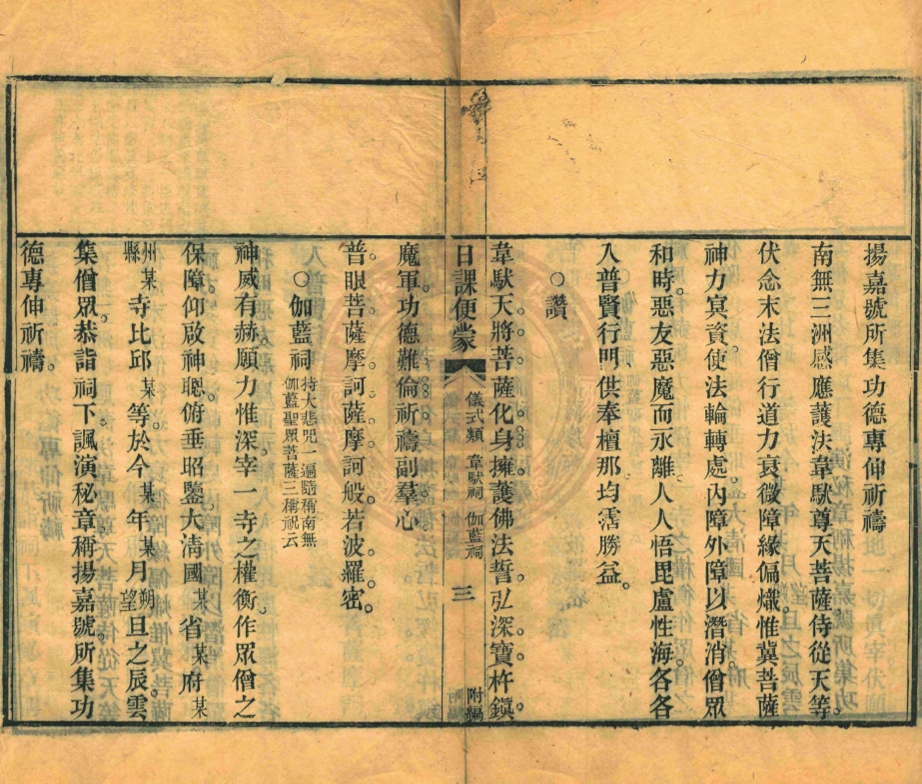 揚嘉號所集功德專伸祈禱
南無三洲感應護法韋馱尊天菩薩侍從天等。
伏念末法僧行道力衰微障緣偏熾惟冀菩薩
神力冥資使法輪轉處。內障外障以潛消。僧眾
和時。惡友惡魔而永離人人悟毘盧性海。各各
入普賢行門。供奉檀那均霑勝益。
○讚
韋馱天將。菩薩化身。擁護佛法誓。弘深。寶杵鎮。
魔軍。功德難倫。祈禱副羣心。
普眼菩薩摩訶薩。摩訶般。若波。羅。密。
○伽藍祠 持大悲咒一遍隨稱南無
伽藍聖眾菩薩三稱祝云
神威有赫。願力惟深。宰一寺之權衡。作眾僧之
保障。仰啟神聰。俯垂昭鑒。大淸國某省某府某
州縣某寺比邱某等。於今某年某月朔望旦之辰。雲
集僧眾。恭詣祠下。諷演秘章。稱揚嘉號。所集功
德專伸祈禱。
日課便蒙 儀式類 韋馱祠 伽藍祠 三 附編